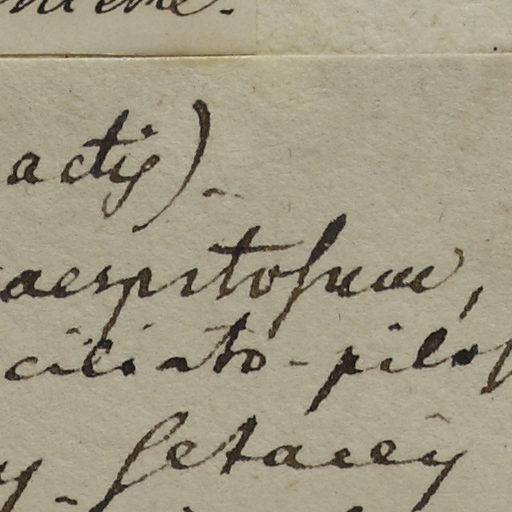 actis).
caespitosum,
ciliato-pilos
setaceis